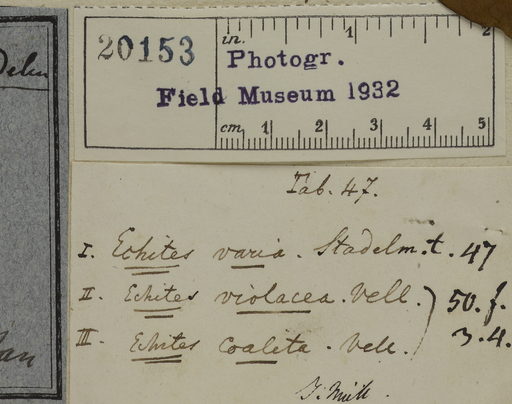 20153
in. 1 2
Photogr.
Field Museum 1932
cm. 1 2 3 4 5
Tab. 47.
I. Echites varia. Stadelm. t. 47
II. Echites violacea. Vell. } 50. f.
III. Echites coalita. Vell. 3. 4.